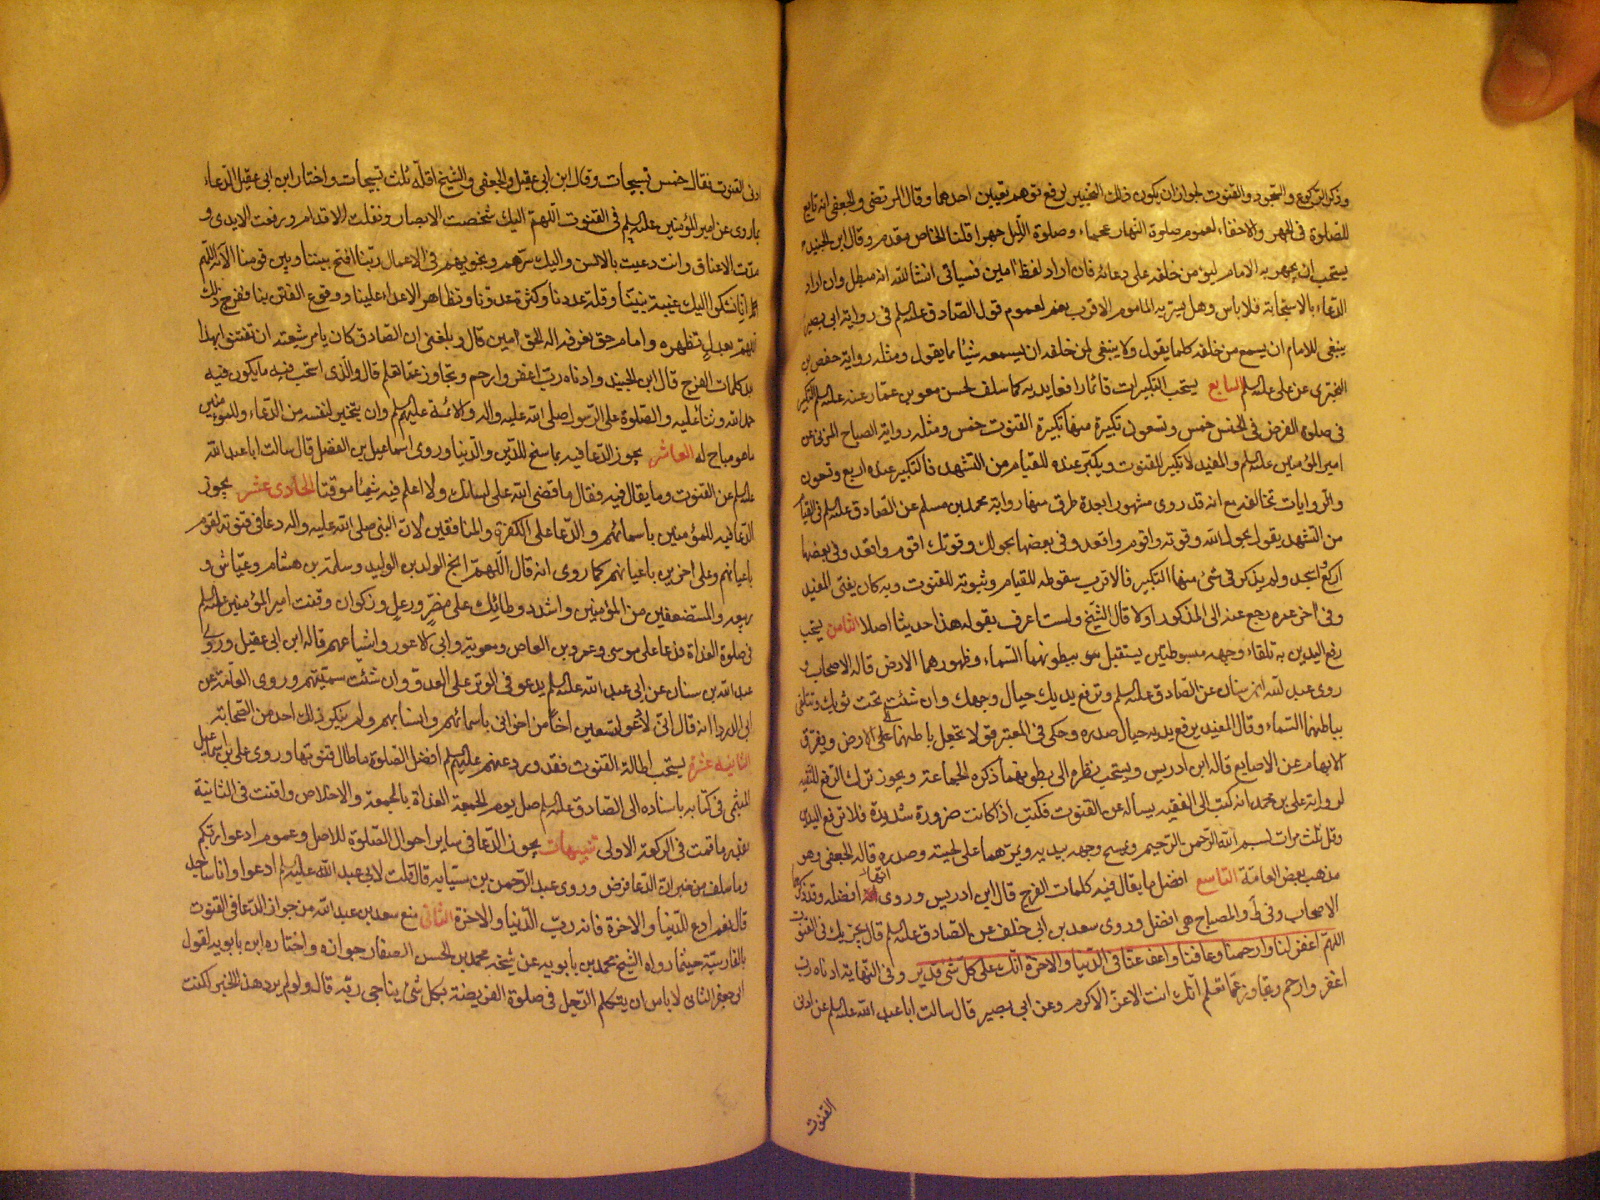 وذكر الركوع والسجود والقنوت لجواز ان يكون ذلك التخيير لرفع توهم تعيين احدهما وقال المرتضى والجعفى انه تابع
للصلوة فى الجهر والاخفاء لعموم صلوة النهار عجماء وصلوة الليل جهرا قلنا الخاص مقدم وقال ابن الجنيد
يستحب ان يجهر به الامام ليؤمن من خلفه على دعائه فان اراد لفظ امين فسياتى انشا الله انه مبطل وان اراد
الدعاء بالاستجابة فلا باس وهل يسر به الماموم الاقرب نعم لعموم قول الصادق عليه السلم فى رواية ابى بصير
ينبغى للامام ان يسمع من خلفه كلما يقول ولا ينبغى لمن خلفه ان يسمعه شيئا مما يقول ومثله رواية حفص بن
البخترى عن على عليه السلم السابع يستحب التكبيرات قائما رافعا يديه كما سلف لحسن معوية بن عمار عنه عليه السلم التكبير
فى صلوة الفرض فى الخمس خمس وتسعون تكبيرة منها تكبيرة القنوت خمس ومثله رواية الصباح المزنى عن
امير المؤمنين عليه السلم والمفيد لا تكبير للقنوت ويكبر عنده للقيام من التشهد فالتكبير عنده اربع وتسعون
والروايات تخالفه مع انه قد روى مشهورا بعدة طرق منها رواية محمد بن مسلم عن الصادق عليه السلم فى القيام
من التشهد يقول بحول الله وقوته اقوم واقعد وفى بعضها بحولك وقوتك اقوم واقعد وفى بعضها
اركع واسجد ولم يذكر فى شئ منها التكبير فالاقرب سقوطه للقيام وثبوته للقنوت وبه كان يفتى المفيد
وفى اخر عمره رجع عنه الى المذكور اولا قال الشيخ ولست اعرف بقوله هذا حديثا اصلا الثامن يستحب
رفع اليدين به تلقاء وجهه مبسوطتين يستقبل ببطونهما السماء وظهورهما الارض قاله الاصحاب و
روى عبد الله ابن سنان عن الصادق عليه السلم وترفع يديك حيال وجهك وان شئت تحت ثوبك وتتلقى
بباطنهما السماء وقال المفيد يرفع يديه حيال صدره وحكى فى المعتبر قولا بجعل باطنهما على الارض ويفرق
الابهام عن الاصابع قاله ابن ادريس ويستحب نظره الى بطونهما ذكره الجماعة ويجوز ترك الرفع للتقيه
لرواية على بن محمد انه كتب الى الفقيه يساله عن القنوت فكتب اذا كانت ضرورة شديدة فلا ترفع اليدين
وقل ثلث مرات بسم الله الرحمن الرحيم ويمسح وجهه بيديه ويمرهما على لحيته وصدره قاله الجعفى وهو
مذهب بعض العامة التاسع افضل ما يقال فيه كلمات الفرج قال ابن ادريس وروى انها افضله وقد ذكرها
الاصحاب وفى ط والمصباح هى افضل وروى سعد بن ابى خلف عن الصادق عليه السلم قال يجزيك فى القنوت
اللهم اغفر لنا وارحمنا وعافنا واعف عنا فى الدنيا والاخرة انك على كل شئ قدير وفى النهاية ادناه رب
اغفر وارحم وتجاوز عما تعلم انك انت الاعز الاكرم وعن ابى بصير قال سالت ابا عبد الله عليه السلم عن ادنى
القنوت
ادنى القنوت فقال خمس تسبيحات وقال ابن ابى عقيل والجعفى والشيخ اقله ثلث تسبيحات واختار ابن ابى عقيل الدعاء
بما روى عن امير المؤمنين عليه السلم فى القنوت اللهم اليك شخصت الابصار ونقلت الاقدام ورفعت الايدى و
مدت الاعناق وانت دعيت بالالسن واليك سرهم ونجويهم فى الاعمال ربنا افتح بيننا وبين قومنا الاية اللهم
انا نشكوا اليك غيبة نبينا وقلة عددنا وكثرة عدونا وتظاهر الاعداء علينا ووقوع الفتن بنا ففرج ذلك
اللهم بعدل تظهره وامام حق تعرفه اله الحق امين قال وبلغنى ان الصادق كان يامر شيعته ان تقنتوا بهذا
بعد كلمات الفرج قال ابن الجنيد وادناه رب اغفر وارحم وتجاوز عما تعلم قال والذى استحب فيه ما يكون فيه
حمد الله وثنا عليه والصلوة على الرسول صلى الله عليه واله والائمة عليهم السلم وان يتخير لنفسه من الدعاء وللمؤمنين
ما هو مباح له العاشر يجوز الدعا فيه بما سنح للدين والدنيا وروى اسماعيل بن الفضل قال سالت ابا عبد الله
عليه السلم عن القنوت وما يقال فيه فقال ما قضى الله على لسانك ولا اعلم فيه شيئا موقتا الحادى عشر يجوز
الدعا فيه للمؤمنين باسمائهم والدعا على الكفرة والمنافقين لان النبى صلى الله عليه واله دعا فى قنوته لقوم
باعيانهم وعلى اخرين باعيانهم كما روى انه قال اللهم انج الوليد بن الوليد وسلمة بن هشام وعياش و
ربيعه والمستضعفين من المؤمنين واشدد وطاتك على مضر ورعل وذكوان وقنت امير المؤمنين عليه السلم
فى صلوة الغداة فدعا على ابى موسى وعمرو بن العاص ومعوية وابى الاعور واشياعهم قاله ابن ابى عقيل وروى
عبد الله بن سنان عن ابى عبد الله عليه السلم يدعو فى الوتر على العدو وان شئت سميتهم وروى العامة عن
ابى الدرداء انه قال انى لادعو لسبعين اخا من اخوانى باسمائهم وانسابهم ولم ينكر ذلك احد من الصحابة
الثانيه عشرة يستحب اطالة القنوت فقد ورد عنهم عليهم السلم افضل الصلوة ما طال قنوتها وروى على بن اسماعيل
الميثمى فى كتابه باسناده الى الصادق عليه السلم صل يوم الجمعة الغداة بالجمعة والاخلاص واقنت فى الثانية
بقدر ما قمت فى الركعة الاولى تنبيهات يجوز الدعا فى ساير احوال الصلوة للاصل وعموم ادعوا ربكم
وما سلف من خبرات الدعا فرض وروى عبد الرحمن بن سيابه قال قلت لابى عبد الله عليه السلم ادعوا وانا ساجد
قال نعم ادع للدنيا والاخرة فانه رب الدنيا والاخرة الثانى منع سعد بن عبد الله من جواز الدعا فى القنوت
بالفارسية حيثما رواه الشيخ محمد بن بابويه عن شيخه محمد بن الحسن الصفار جوازه واختاره ابن بابويه لقول
ابى جعفر الثانى لا باس ان يتكلم الرجل فى صلوة الفريضة بكل شئ يناجى ربه قال ولو لم يرد هذا الخبر لكنت